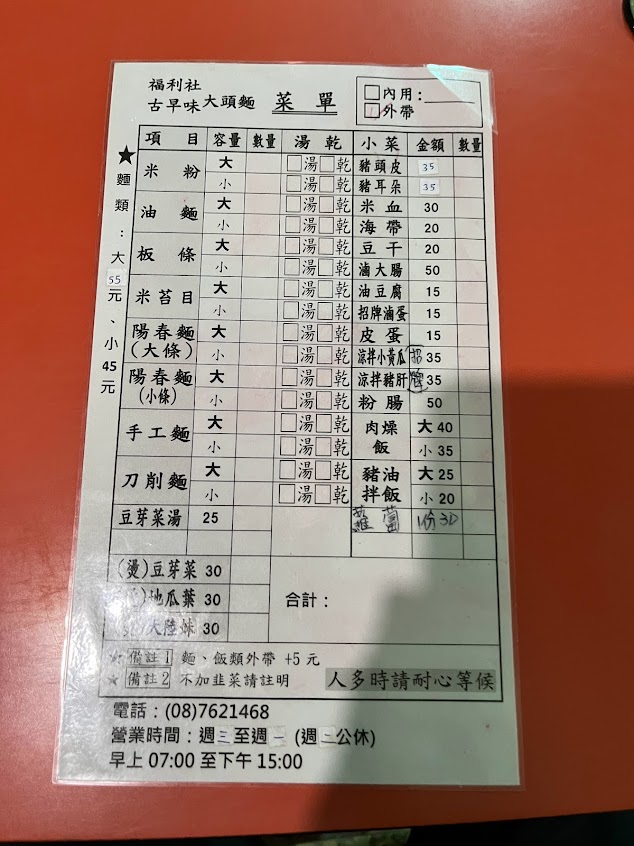 福利社
古早味大頭麵 菜單
內用：
外帶
★麵類：大55元、小45元
項目 容量 數量 湯 乾 小菜 金額 數量
米粉 大 湯 乾 豬頭皮 35
小 湯 乾 豬耳朵 35
油麵 大 湯 乾 米血 30
小 湯 乾 海帶 20
板條 大 湯 乾 豆干 20
小 湯 乾 滷大腸 50
米苔目 大 湯 乾 油豆腐 15
小 湯 乾 招牌滷蛋 15
陽春麵(大條) 大 湯 乾 皮蛋 15
小 湯 乾 涼拌小黃瓜 招 35
陽春麵(小條) 大 湯 乾 涼拌豬肝 牌 35
小 湯 乾 粉腸 50
手工麵 大 湯 乾 肉燥飯 大40
小 湯 乾 小35
刀削麵 大 湯 乾 豬油拌飯 大25
小 湯 乾 小20
豆芽菜湯 25 1份30
(燙)豆芽菜 30
地瓜葉 30
大陸妹 30
合計：
備註1 麵、飯類外帶 +5元
★備註2 不加韭菜請註明 人多時請耐心等候
電話：(08)7621468
營業時間：週三至週一 (週二公休)
早上 07:00 至下午 15:00